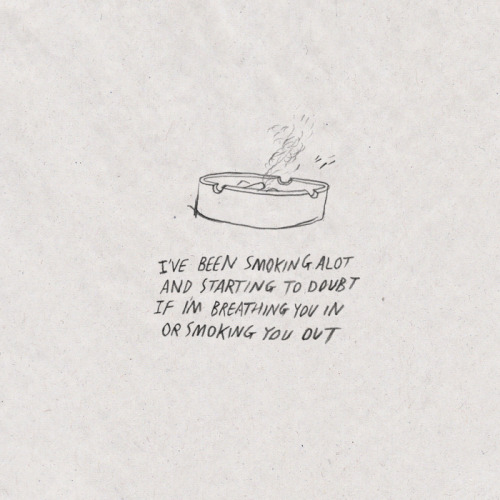 I'VE BEEN SMOKING ALOT
AND STARTING TO DOUBT
IF I'M BREATHING YOU IN
OR SMOKING YOU OUT